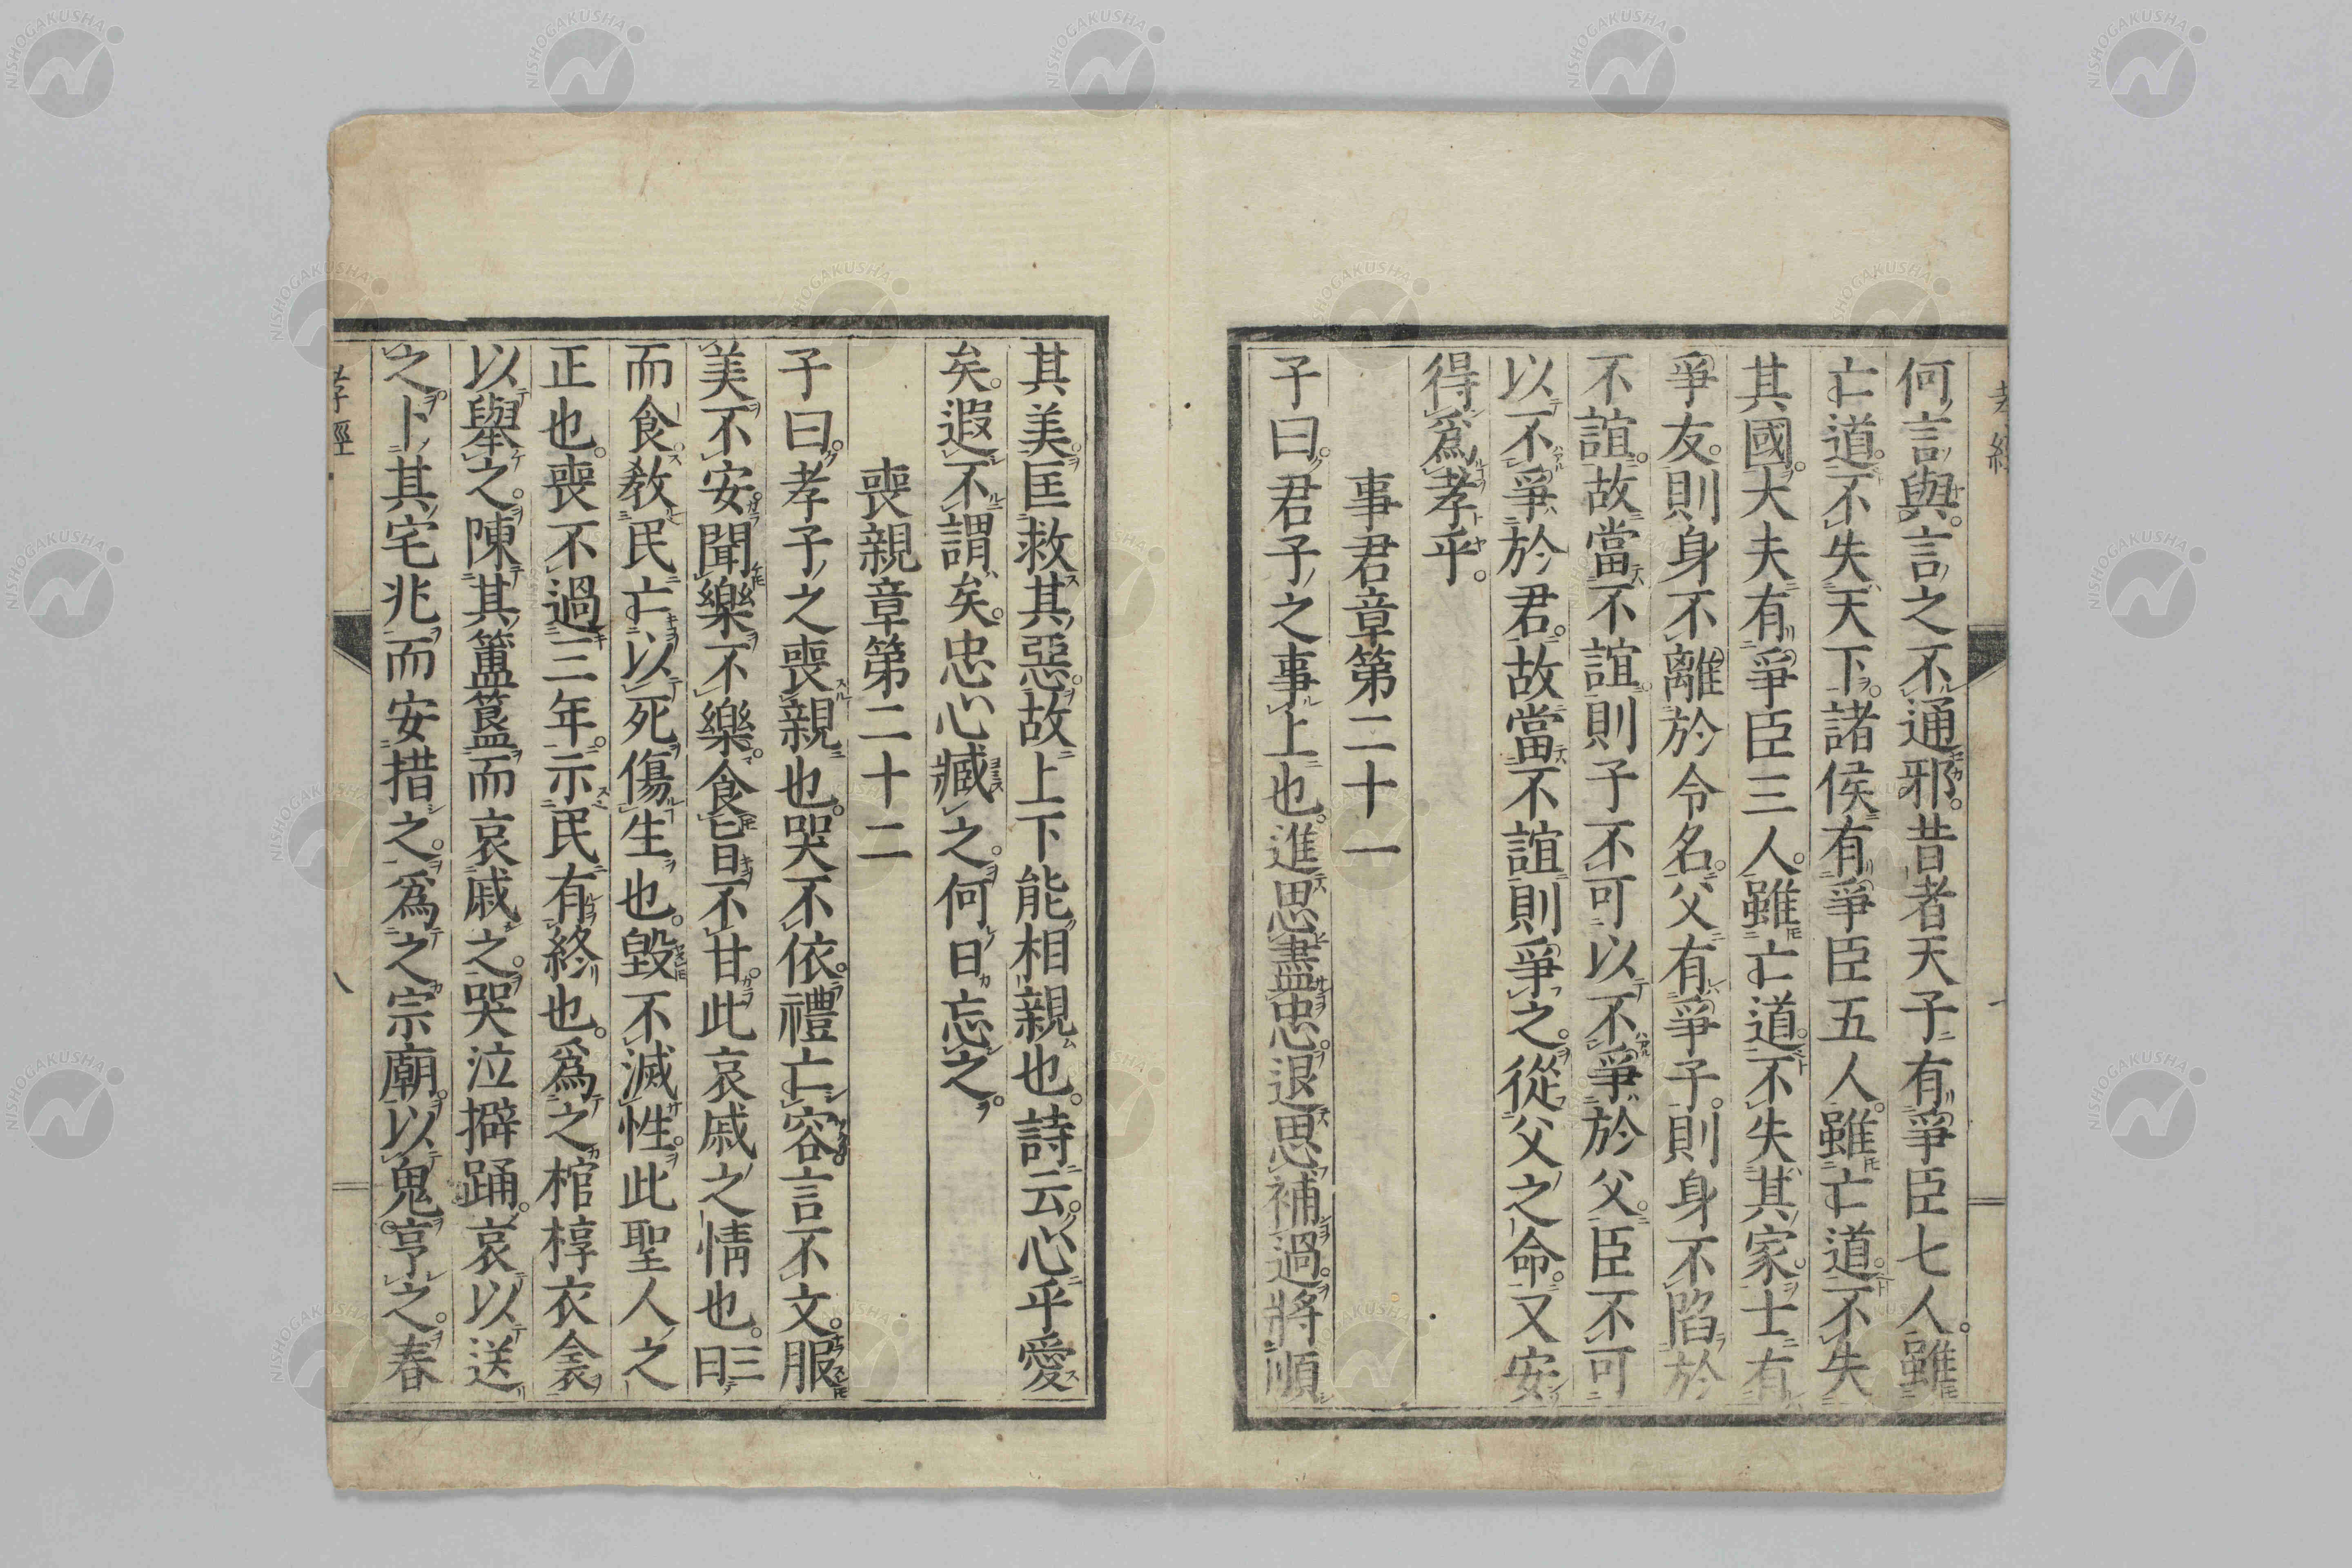 孝經
何言與言之不通邪昔者天子有爭臣七人雖
亡道不失天下諸侯有爭臣五人雖亡道不失
其國大夫有爭臣三人雖亡道不失其家士有
爭友則身不離於令名父有爭子則身不陷於
不誼故當不誼則子不可以不爭於父臣不可
以不爭於君故當不誼則爭之從父之命又安
得爲孝乎
事君章第二十一
子曰君子之事上也進思盡忠退思補過將順
其美匡救其惡故上下能相親也詩云心乎愛
矣遐不謂矣忠心臧之何日忘之
喪親章第二十二
子曰孝子之喪親也哭不依禮亡容言不文服
美不安聞樂不樂食旨不甘此哀戚之情也三日
而食教民亡以死傷生也毀不滅性此聖人之
正也喪不過三年示民有終也爲之棺椁衣衾
以舉之陳其簠簋而哀戚之哭泣擗踊哀以送
之卜其宅兆而安措之爲之宗廟以鬼亨之春
孝經 八
NISHOGAKUSHA